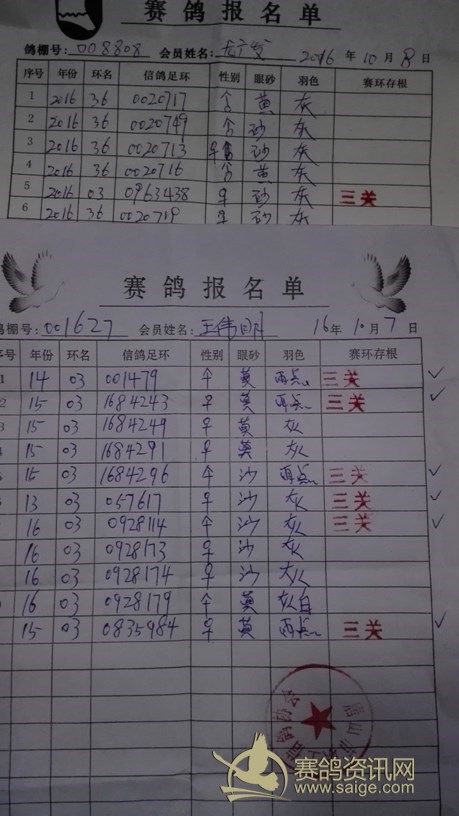 赛鸽报名单
鸽棚号：008808 会员姓名： 2016年10月8日
序号 年份 环名 信鸽足环 性别 眼砂 羽色 赛环存根
1 2016 36 0020717 黄 灰
2 2016 36 0020749 砂 灰
3 2016 36 0020713 砂 灰
4 2016 36 0020716 黄 灰
5 2016 03 0963438 砂 灰 三关
6 2016 36 0020719 砂 灰
赛鸽报名单
鸽棚号：001627 会员姓名：王伟明 16年10月7日
序号 年份 环名 信鸽足环 性别 眼砂 羽色 赛环存根
1 14 03 001479 黄 雨点 三关 ✓
2 15 03 1684243 黄 雨点 三关 ✓
3 15 03 1684249 黄 灰
15 03 1684291 黄 灰
15 03 1684296 沙 雨点 三关 ✓
13 03 057617 沙 灰 三关 ✓
16 03 0928114 沙 灰 三关 ✓
16 03 0928173 沙 灰
16 03 0928174 沙 灰
16 03 0928179 黄 灰白
15 03 0835984 黄 雨点 三关 ✓
赛鸽资讯网
www.saige.com